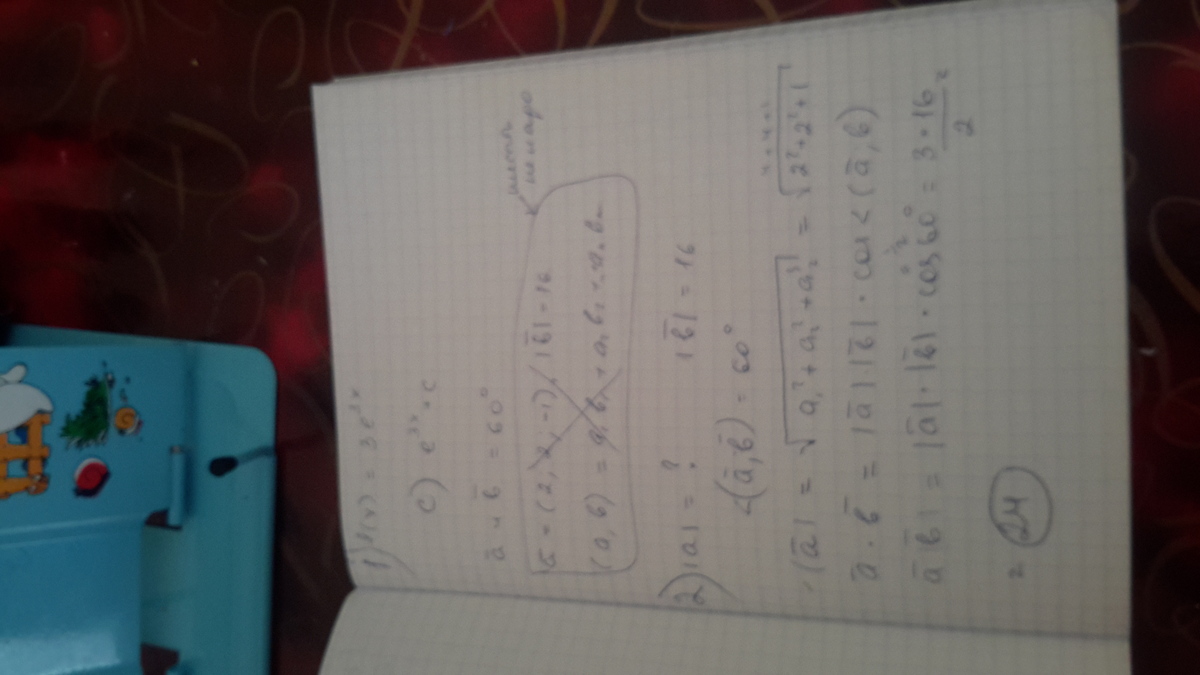 1) f(x) = 3e³ˣ
c) e³ˣ + c
a̅ и b̅ = 60°
a̅ = (2, 2, -1), |b̅| = 16
(a, b) = a₁b₁ + a₂b₂ + ... aₙbₙ
2) |a| = ? |b̅| = 16
<(a̅, b̅) = 60°
4+4+1
|a̅| = √a₁² + a₂² + a₂³ = √2² + 2² + 1
a̅ · b̅ = |a̅| |b̅| · cos < (a̅, b)
a̅ b̅ | = |a̅| · |b̅| · cos 60° = 3 · 16 / 2 =
= 24